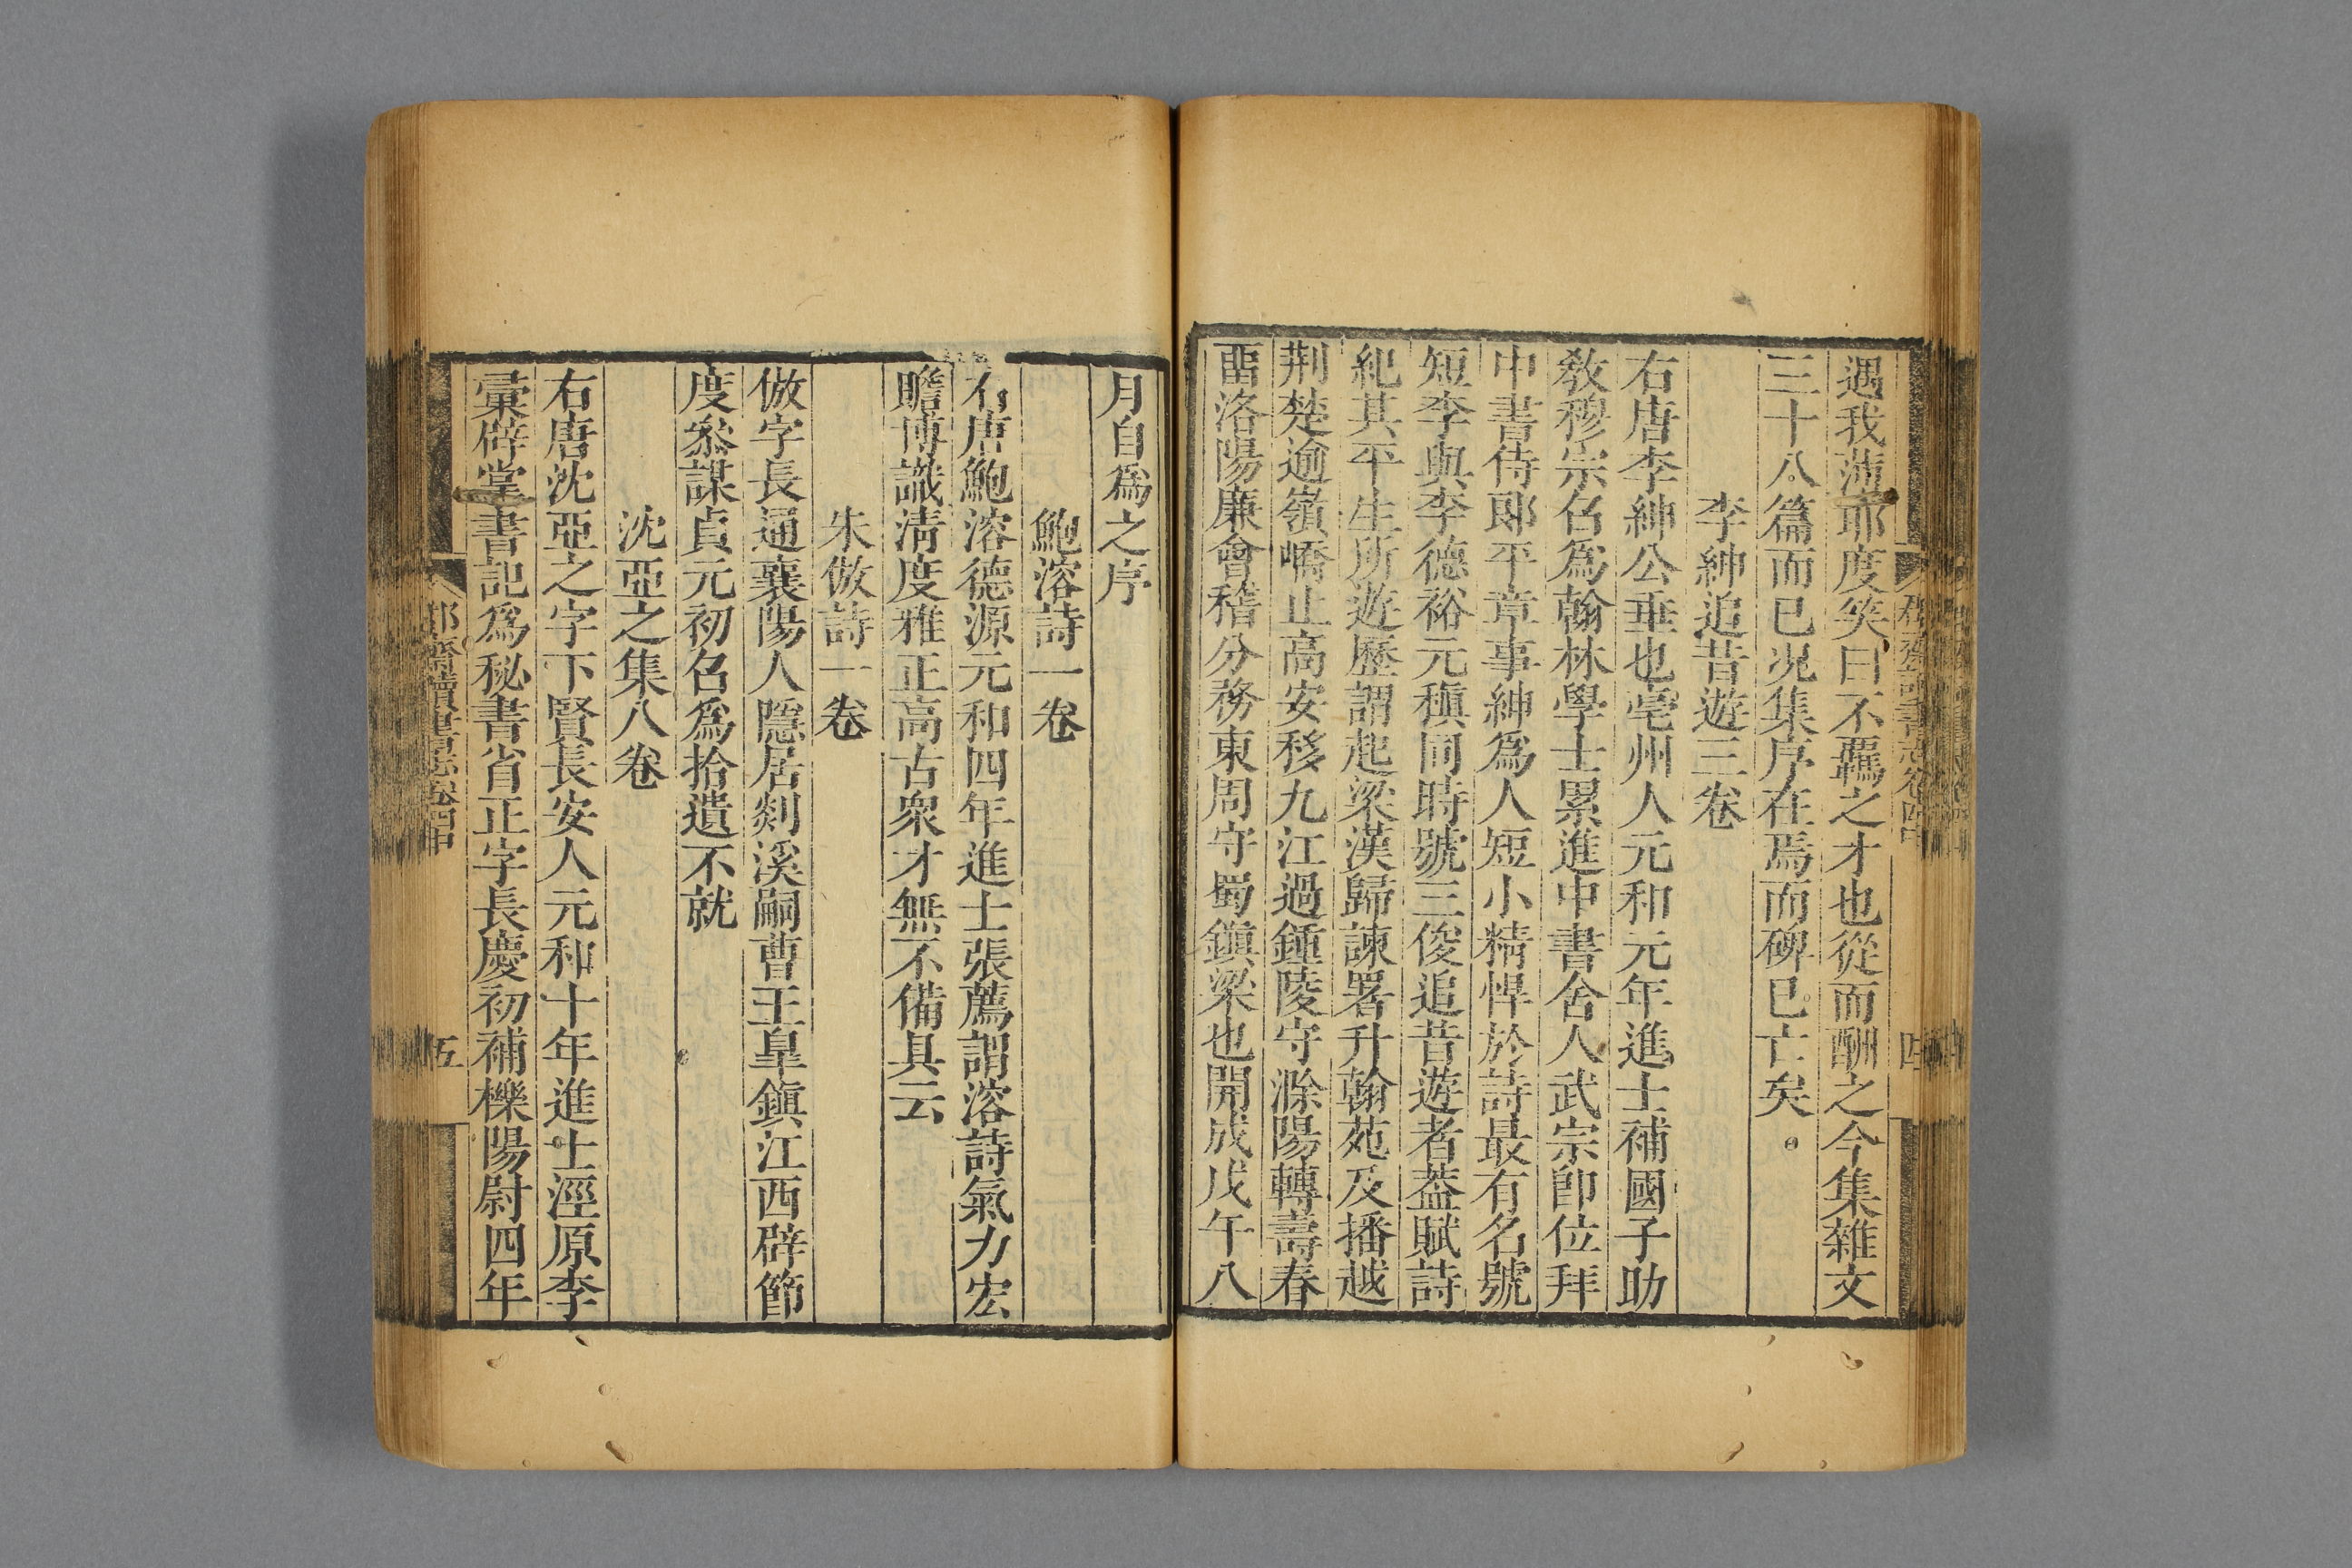 遇我薄耶度笑曰不羈之才也從而酬之今集雜文
三十八篇而已况集序在焉而碑已亡矣
李紳追昔遊三卷
右唐李紳公垂也亳州人元和元年進士補國子助
教穆宗召爲翰林學士累進中書舍人武宗卽位拜
中書侍郎平章事紳爲人短小精悍於詩最有名號
短李與李德裕元稹同時號三俊追昔遊者蓋賦詩
紀其平生所遊歷謂起梁漢歸諫署升翰苑及播越
荆楚逾嶺嶠止高安移九江過鍾陵守滁陽轉壽春
畱洛陽廉會稽分務東周守蜀鎭梁也開成戊午八
月自爲之序
鮑溶詩一卷
右唐鮑溶德源元和四年進士張薦謂溶詩氣力宏
贍博識淸度雅正高古衆才無不備具云
朱倣詩一卷
倣字長通襄陽人隱居剡溪嗣曹王皐鎭江西辟節
度叅謀貞元初召爲拾遺不就
沈亞之集八卷
右唐沈亞之字下賢長安人元和十年進士涇原李
彚辟掌書記爲秘書省正字長慶初補櫟陽尉四年
郡齋讀書志卷四中
五